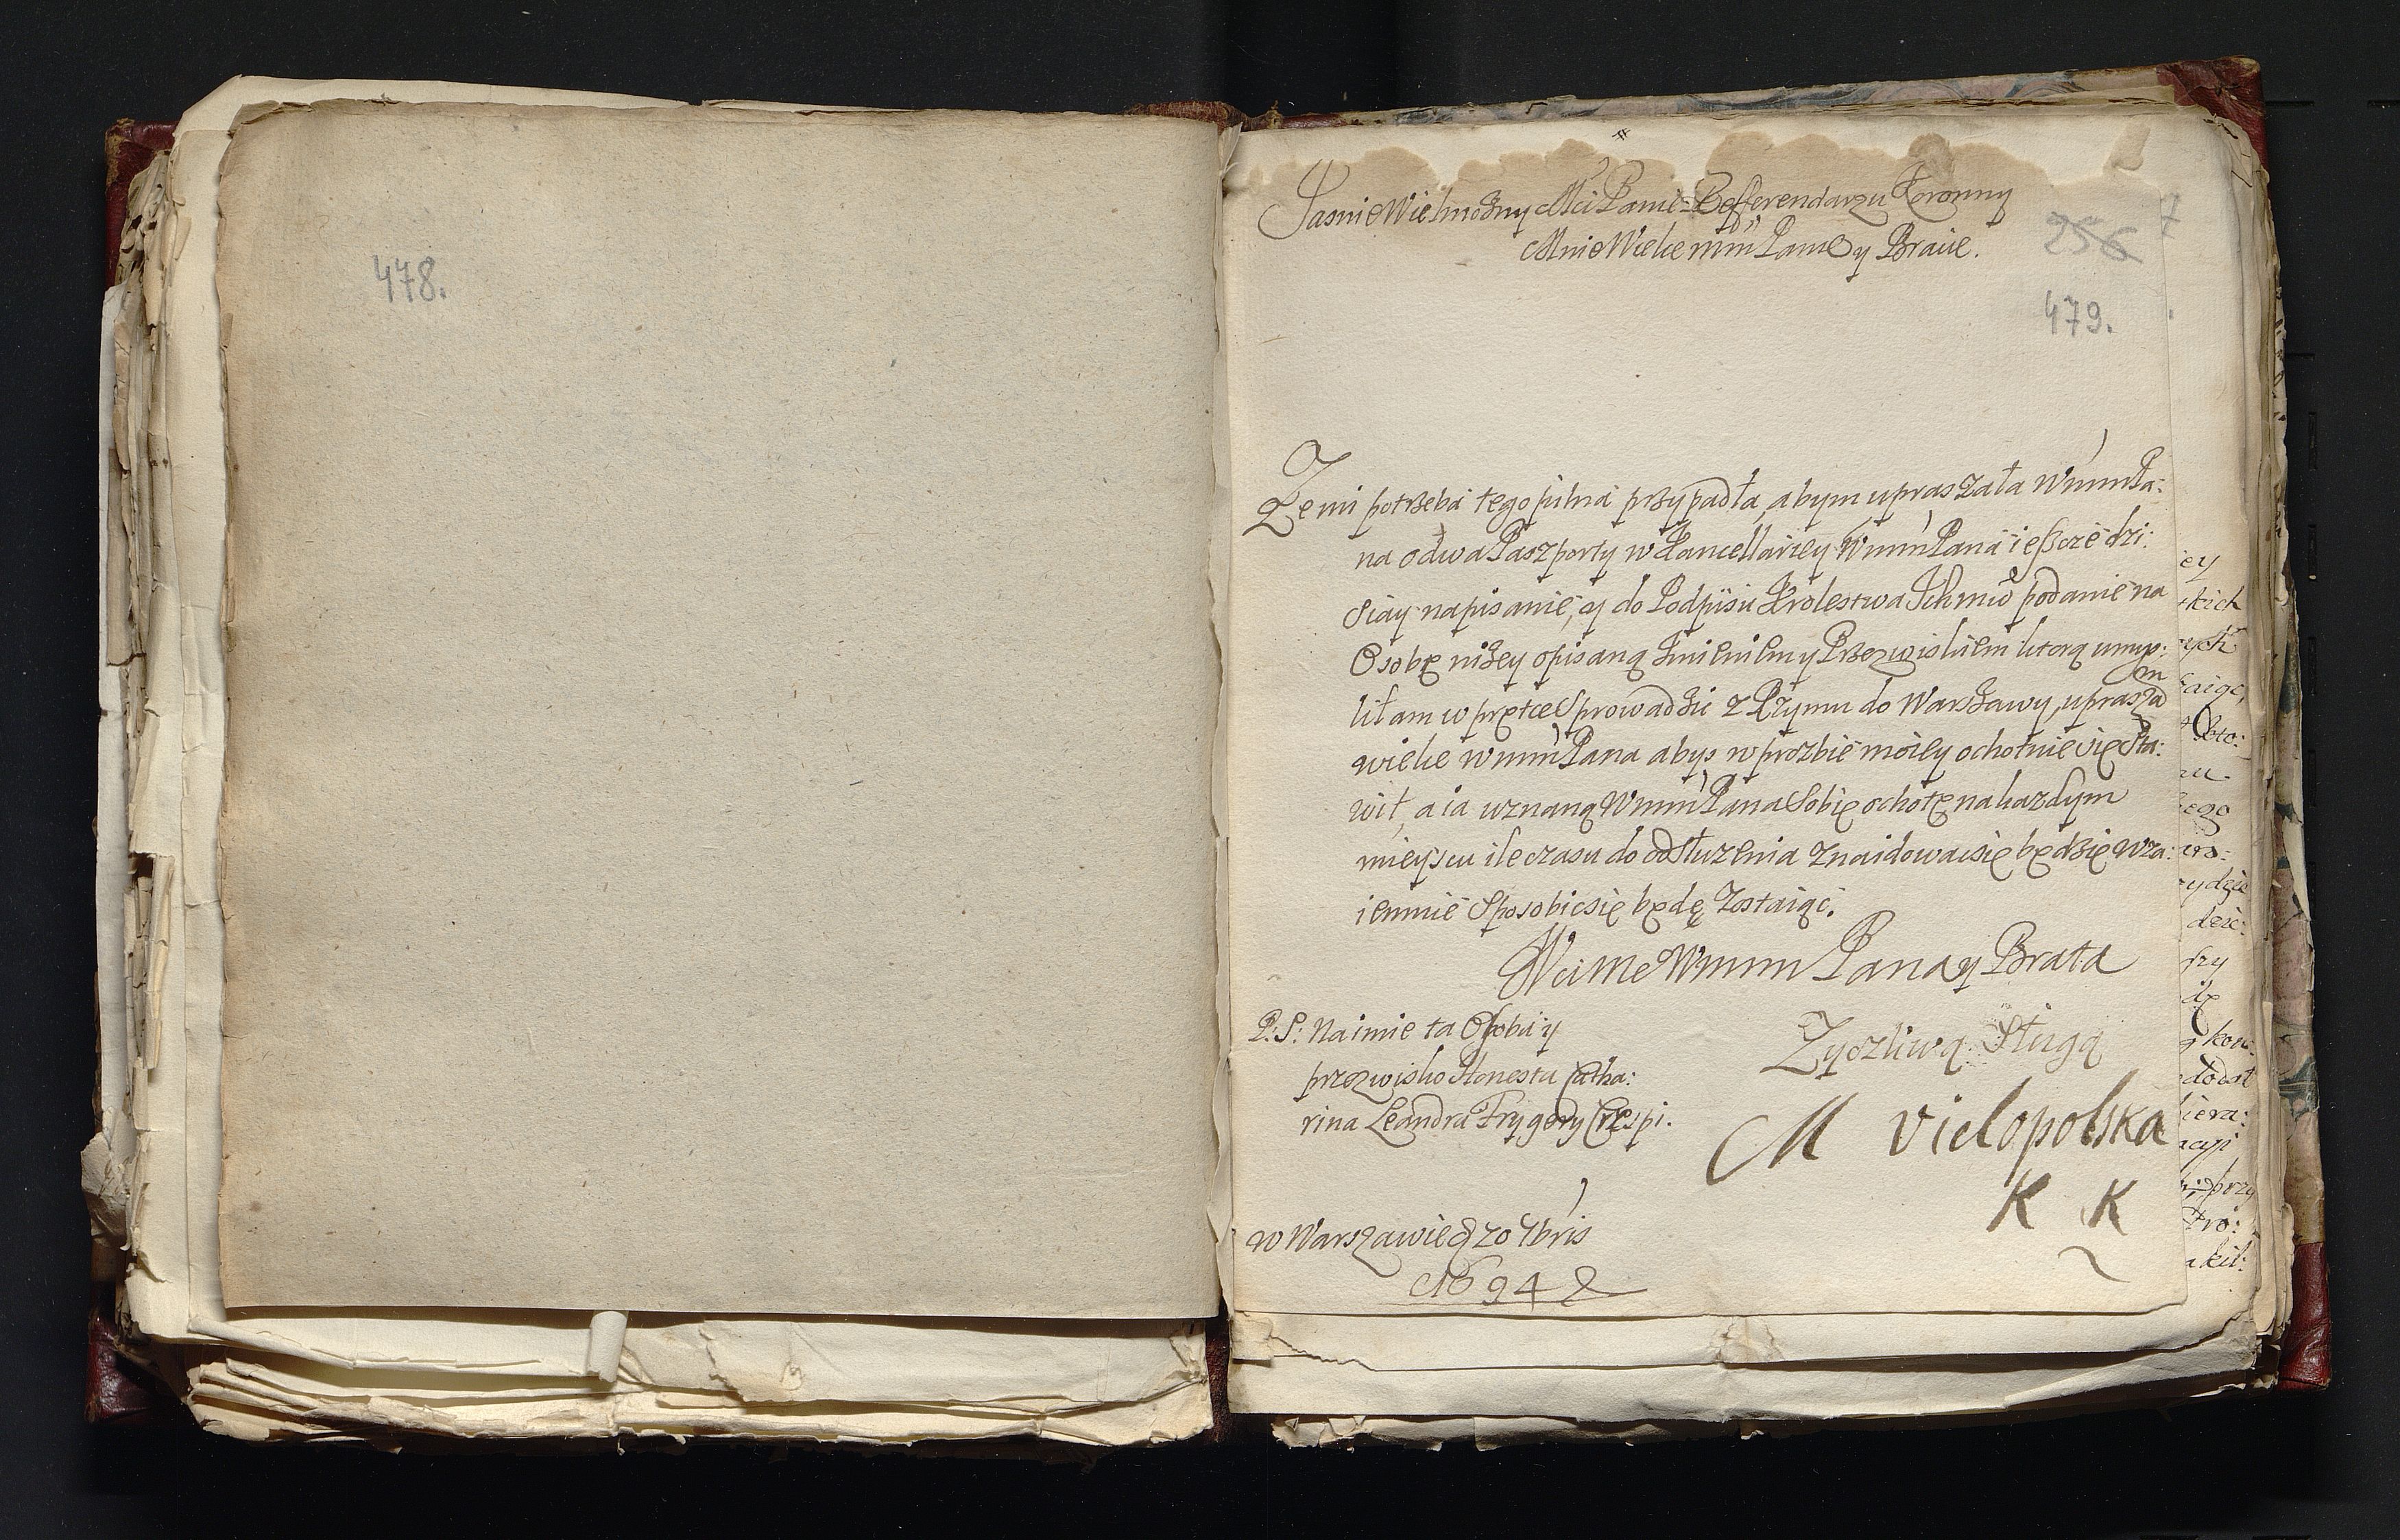 478.
JasnieWielmożny Mci Panie Refferendarzu Koronny
Mnie Wielce mm Panie y Bracie.
256
479.
Ze mi potrzeba tego pilna przypadła, abym upraszała WmmPa:
na o dwa Paszporty w Kancellaryey WmmPana ieszcze dzi:
siay napisanie, y do Podpisu Krolestwa Ichmw podanie na
Osobę niżey opisaną Imieniem y Przezwiskiem ktorą umys:
liłam w prętce Sprowadzić z Rzymu do Warszawy, upraszam
wielce WmmPana abyś w proźbie moiey ochotnie się Sta:
wił, a ia uznaną WmmPana Sobie ochotę na kazdym
mieyscu ile czasu do odsłużenia znaidować się będzie wza:
iemnie Sposobić się będę, Zostaiąc.
Wci Me Wmm Pana y Brata
P: S: Na imie ta Osoba y
przezwisko Honesta Catha:
rina Leandra Frygery Crespi.
Zyczliwą Sługą
M Vielopolska
K K
w Warszawie d 20 7bris
1694